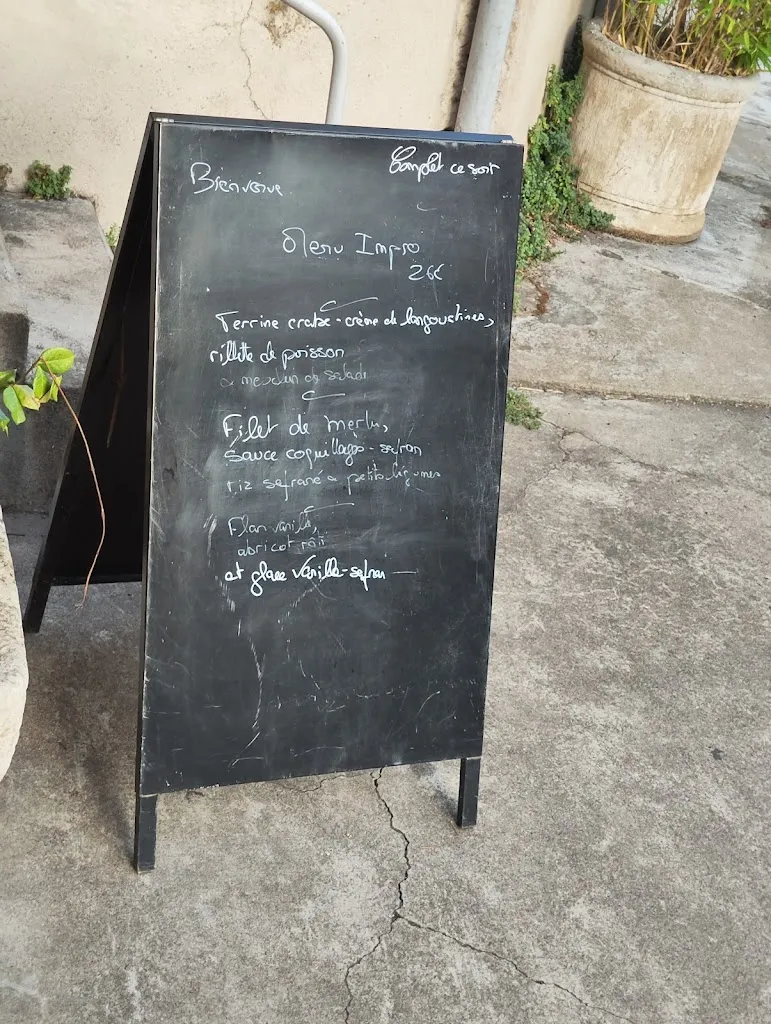 Bienvenue
Complet ce soir
Menu Impro
26€
Terrine crabe - crème de langoustines,
rillette de poisson
& mesclun de salade
Filet de merlu,
sauce coquillages - safran
riz safrané & petits légumes
Flan vanille,
abricot rôti
et glace vanille-safran